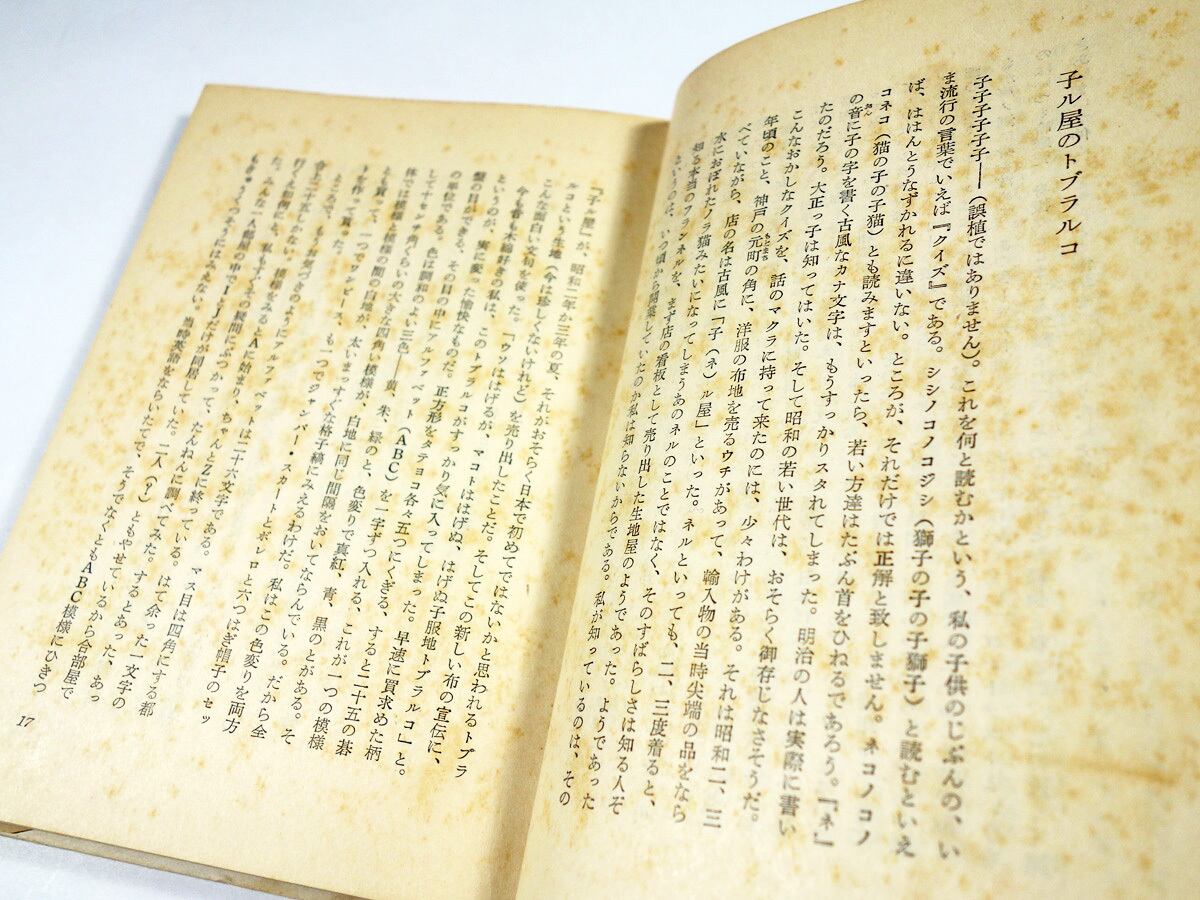 子ル屋のトブラルコ
子子子子子子――(誤植ではありません)。これを何と読むかという、私の子供のじぶんの、い
ま流行の言葉でいえば『クイズ』である。シシノコノコジシ(獅子の子の子獅子)と読むといえ
ば、ははんとうなずかれるに違いない。ところが、それだけでは正解と致しません。ネコノコノ
コネコ(猫の子の子猫)とも読みますといったら、若い方達はたぶん首をひねるであろう。『ネ』
の音に子の字を書く古風なカナ文字は、もうすっかりスタれてしまった。明治の人は実際に書い
たのだろう。大正っ子は知ってはいた。そして昭和の若い世代は、おそらく御存じなさそうだ。
こんなおかしなクイズを、話のマクラに持って来たのには、少々わけがある。それは昭和二、三
年頃のこと、神戸の元町の角に、洋服の布地を売るウチがあって、輸入物の当時尖端の品をなら
べていながら、店の名は古風に「子(ネ)ル屋」といった。ネルといっても、二、三度着ると、
水におぼれたノラ猫みたいになってしまうあのネルのことではなく、そのすばらしさは知る人ぞ
知る本当のフランネルを、まず店の看板として売り出した生地屋のようであった。ようであった
というのは、いつ頃から開業していたのか私は知らないからである。私が知っているのは、その
「子ル屋」が、昭和二年か三年の夏、それがおそらく日本で初めてではないかと思われるトブラ
ルコという生地(今は珍しくないけれど)を売り出したことだ。そしてこの新しい布の宣伝に、
こんな面白い文句を使った。「ウソははげるが、マコトははげぬ、はげぬ子服地トブラルコ」と。
今も昔も木綿好きの私は、このトブラルコがすっかり気に入ってしまった。早速に買求めた柄
というのが、実に変った愉快なものだ。正方形をタテヨコ各々五つにくぎる、すると二十五の碁
盤の目ができる、その目の中にアルファベット(ABC)を一字ずつ入れる、これが一つの模様
の単位である。色は調和のよい三色――黄、朱、緑のと、色変りで真紅、青、黒のとがある。そ
して十センチ角ぐらいの大きな四角い模様が、白地に同じ間隔をおいてならんでいる。だから全
体では模様と模様の間の白地が、太いまっすぐな格子縞にみえるわけだ。私はこの色変りを両方
とも買って、一つでワンピース、も一つでジャンパー・スカートとボレロと六つはぎ帽子のセッ
トを作って貰った。
ところで、もうお気づきのようにアルファベットは二十六文字である。マス目は四角にする都
合上二十五しかない。模様をみるとAに始まり、ちゃんとZに終っている。はて余った一文字の
行くえ如何にと、私もすぐこの疑問にぶつかって、たんねんに調べてみた。するとあった、あっ
た。みんな一人部屋の中でIとJだけが同居していた。二人(?)ともやせているから合部屋で
もきゅうくつそうにはみえない。当時英語をならいたてで、そうでなくともABC模様にひきつ
17